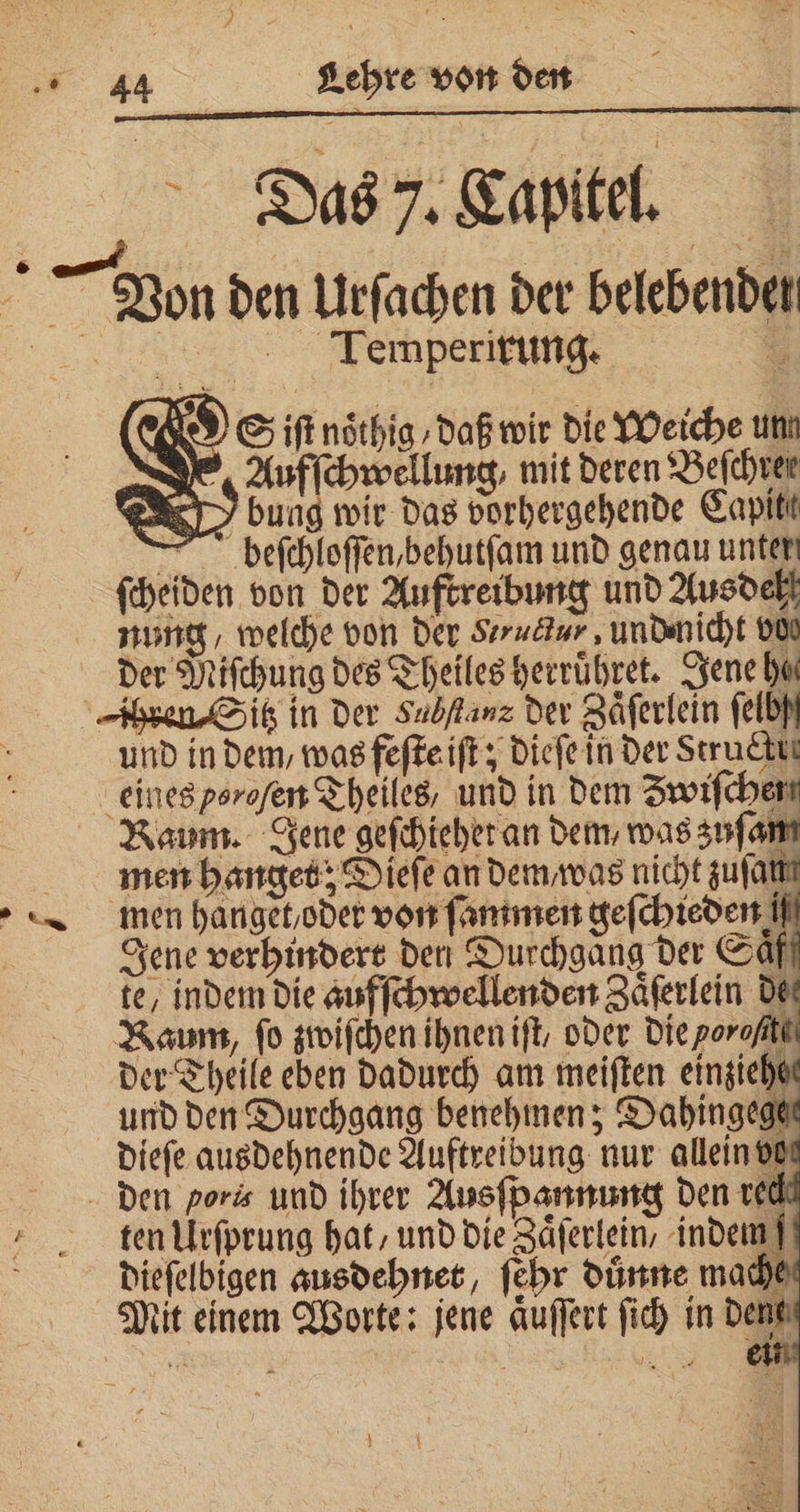 44 Lehre von den
Das 7. Capitel.
Von den Urſachen der belebenden
Temperirung.
ES iſt noͤthig, daß wir die Weiche unn
Aufſchwellung, mit deren Beſchrei
bung wir das vorhergehende Capitt
beſchloſſen, behutſam und genau unter
ſcheiden von der Auftreibung und Ausdeh
nung, welche von der Structur, und nicht von
der Miſchung des Theiles herruͤhret. Jene ha
ihren Sitz in der Subſtanz der Zaͤſerlein ſelbſ
und in dem, was feſte iſt; dieſe in der Structu
eines poroſen Theiles, und in dem Zwiſchen
Raum. Jene geſchiehet an dem, was zuſam
men hanget; Dieſe an dem, was nicht zuſam
men hanget, oder von ſammen geſchieden iſ
Jene verhindert den Durchgang der Saͤf
te, indem die aufſchwellenden Zaͤſerlein de
Raum, ſo zwiſchen ihnen iſt, oder die poroſite
der Theile eben dadurch am meiſten einziehe
und den Durchgang benehmen; Dahingege
dieſe ausdehnende Auftreibung nur allein vo
den poris und ihrer Ausſpannung den rech
ten Urſprung hat, und die Zaͤſerlein, indem ſ
dieſelbigen ausdehnet, ſehr duͤnne mache
Mit einem Worte: jene aͤuſſert ſich in dene
ein